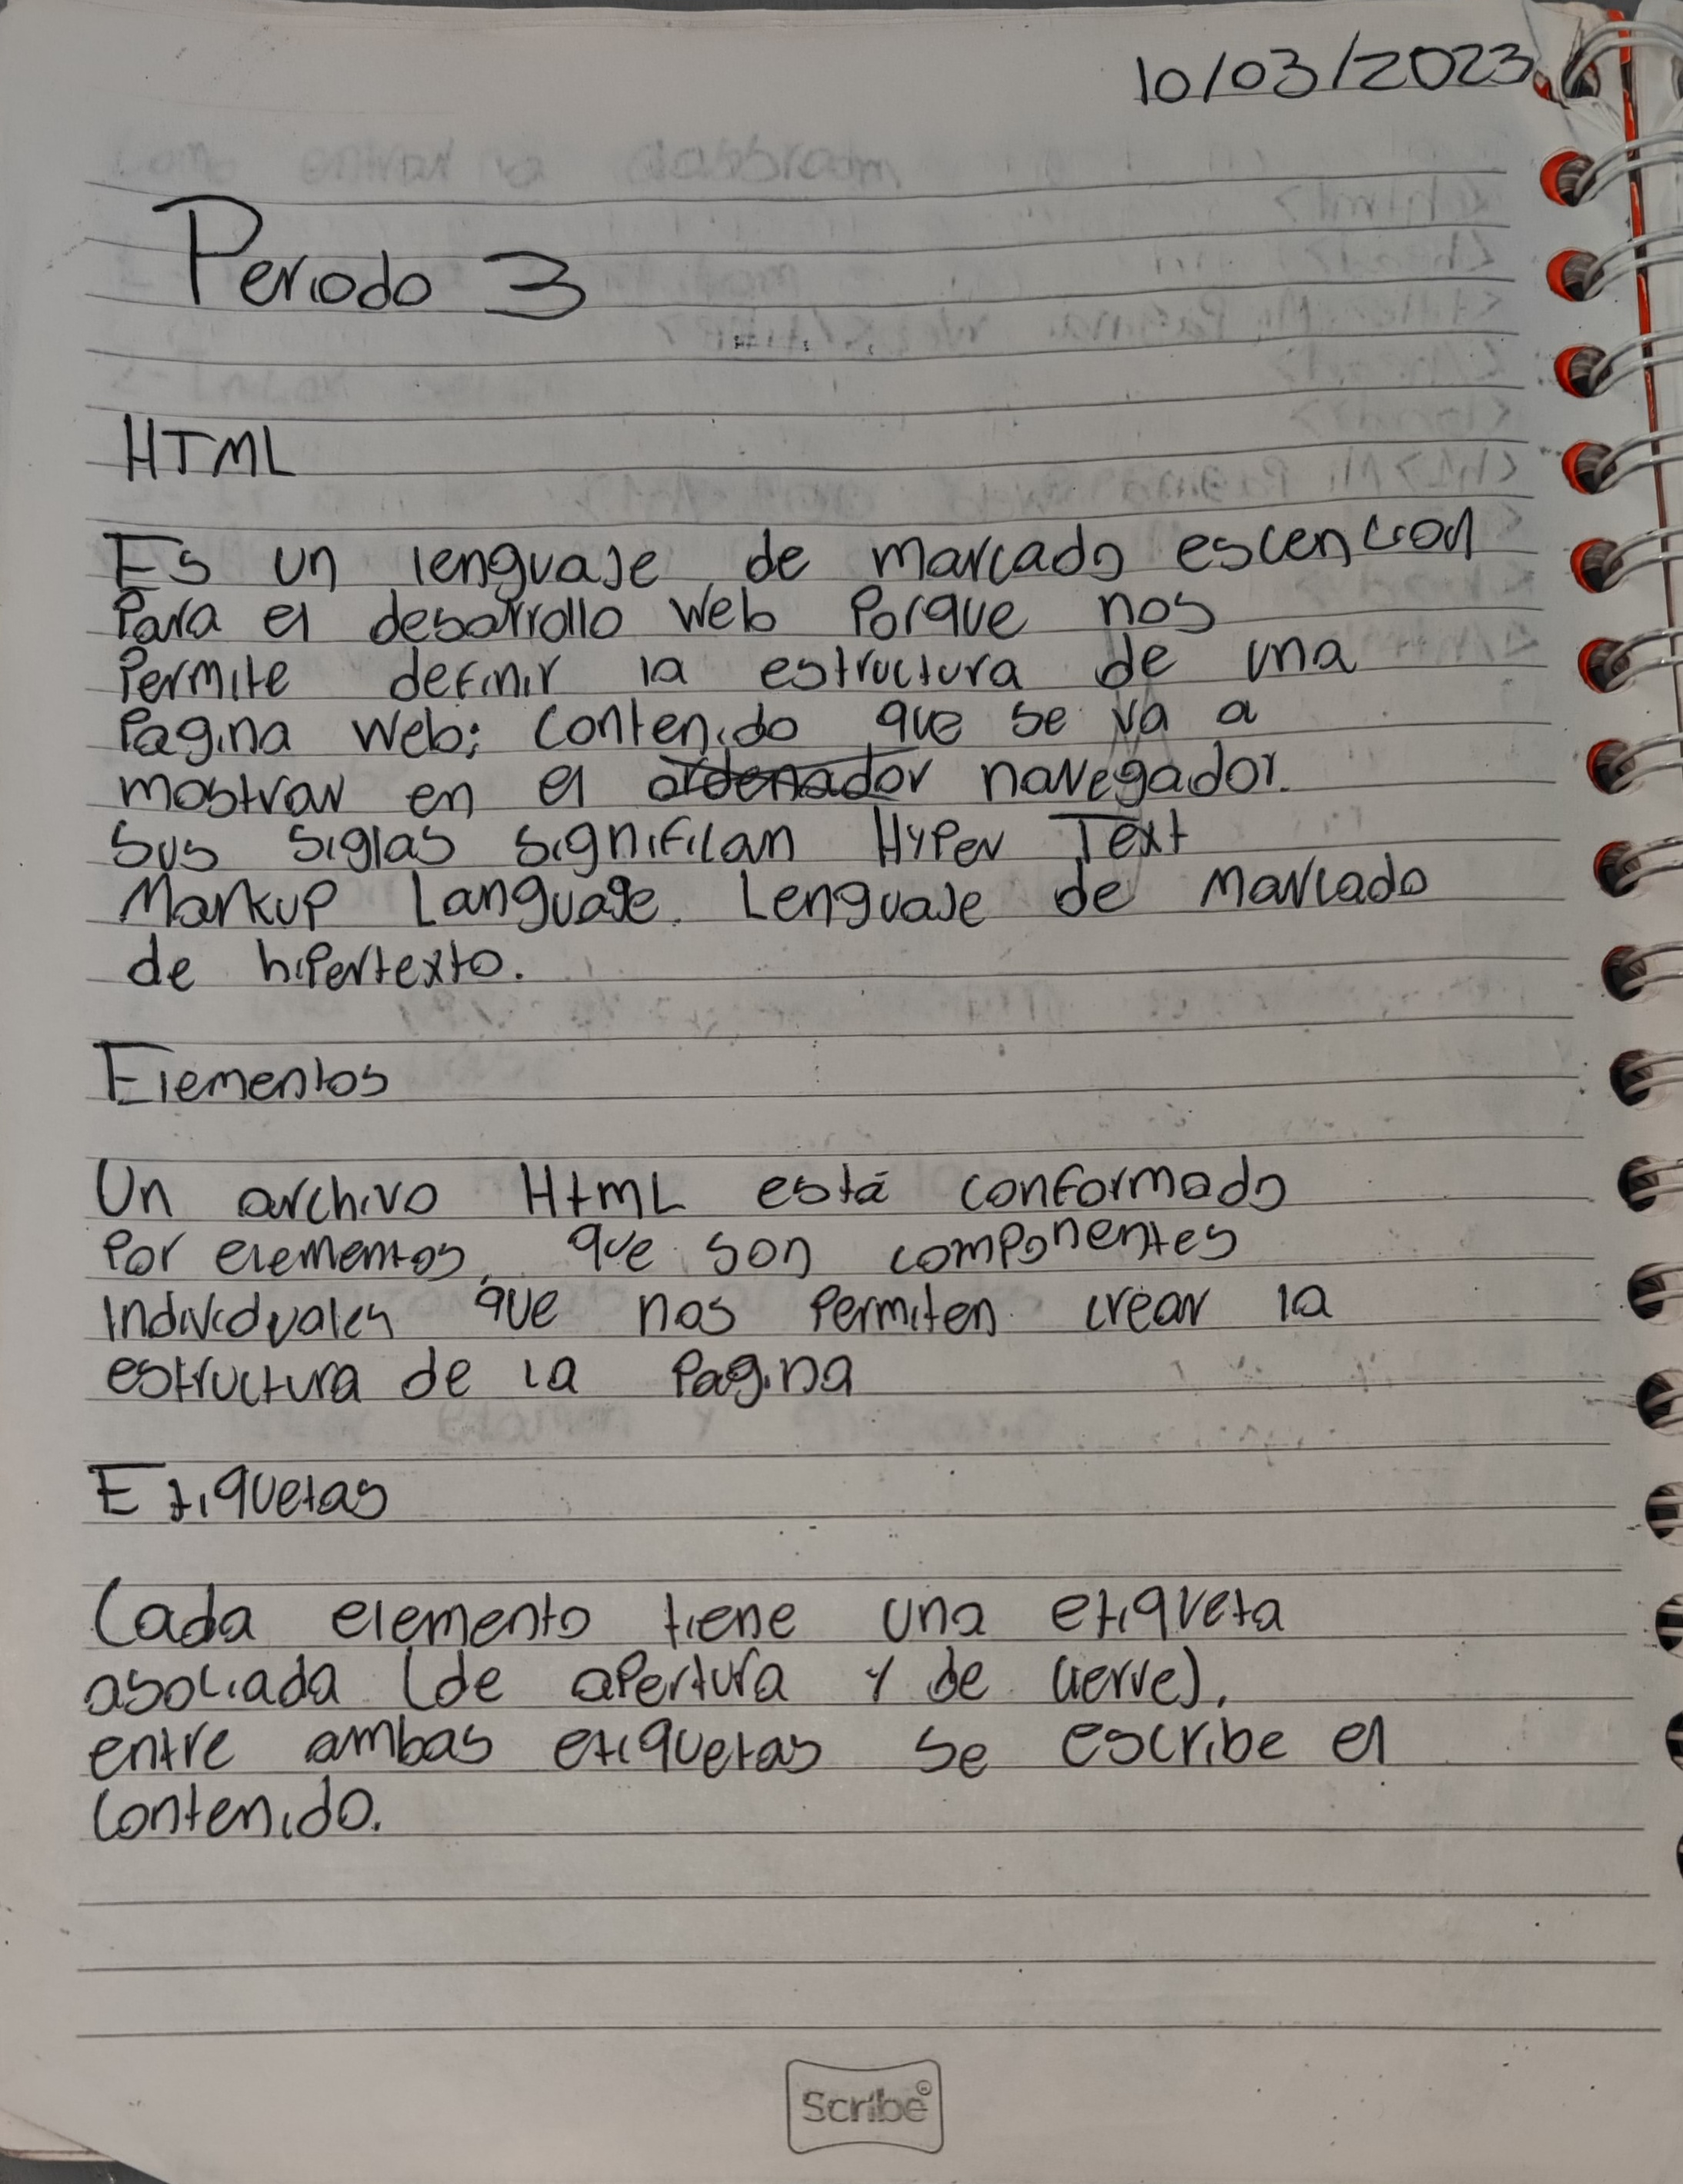 10/03/2023
Periodo 3
HTML
Es un lenguaje de marcado escencial
Para el desarrollo web Porque nos
Permite definir la estructura de una
Pagina web; contenido que se va a
mostrar en el ordenador navegador.
Sus siglas significan Hyper Text
Markup Language. Lenguaje de Marcado
de hipertexto.
Elementos
Un archivo HtmL está conformado
Por elementos, que son componentes
Individuales que nos Permiten crear la
estructura de la Pagina
Etiquetas
Cada elemento tiene una etiqueta
asociada (de apertura y de cierre),
entre ambas etiquetas se escribe el
contenido.
Scribe®